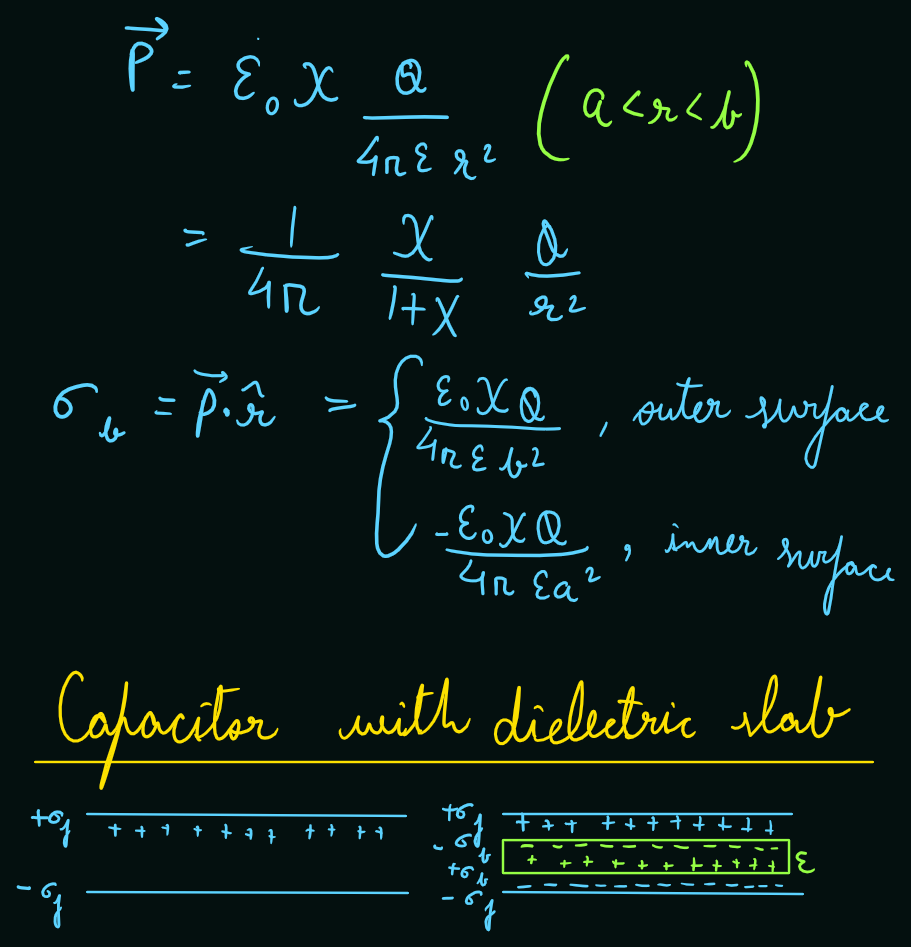 P⃗ = ε₀ χ Q / (4π ε r²) (a < r < b)
= 1/(4π) χ/(1+χ) Q/r²
σ_b = P⃗·r̂ = { ε₀ χ Q / (4π ε b²) , outer surface
-ε₀ χ Q / (4π ε a²) , inner surface
Capacitor with dielectric slab
+σ_f + + + + + + + + + + +
-σ_f
+σ_f + + + + + + + + + + +
-σ_b - - - - - - - - - -
+σ_b + + + + + + + + + + + ε
-σ_f - - - - - - - - - - - -